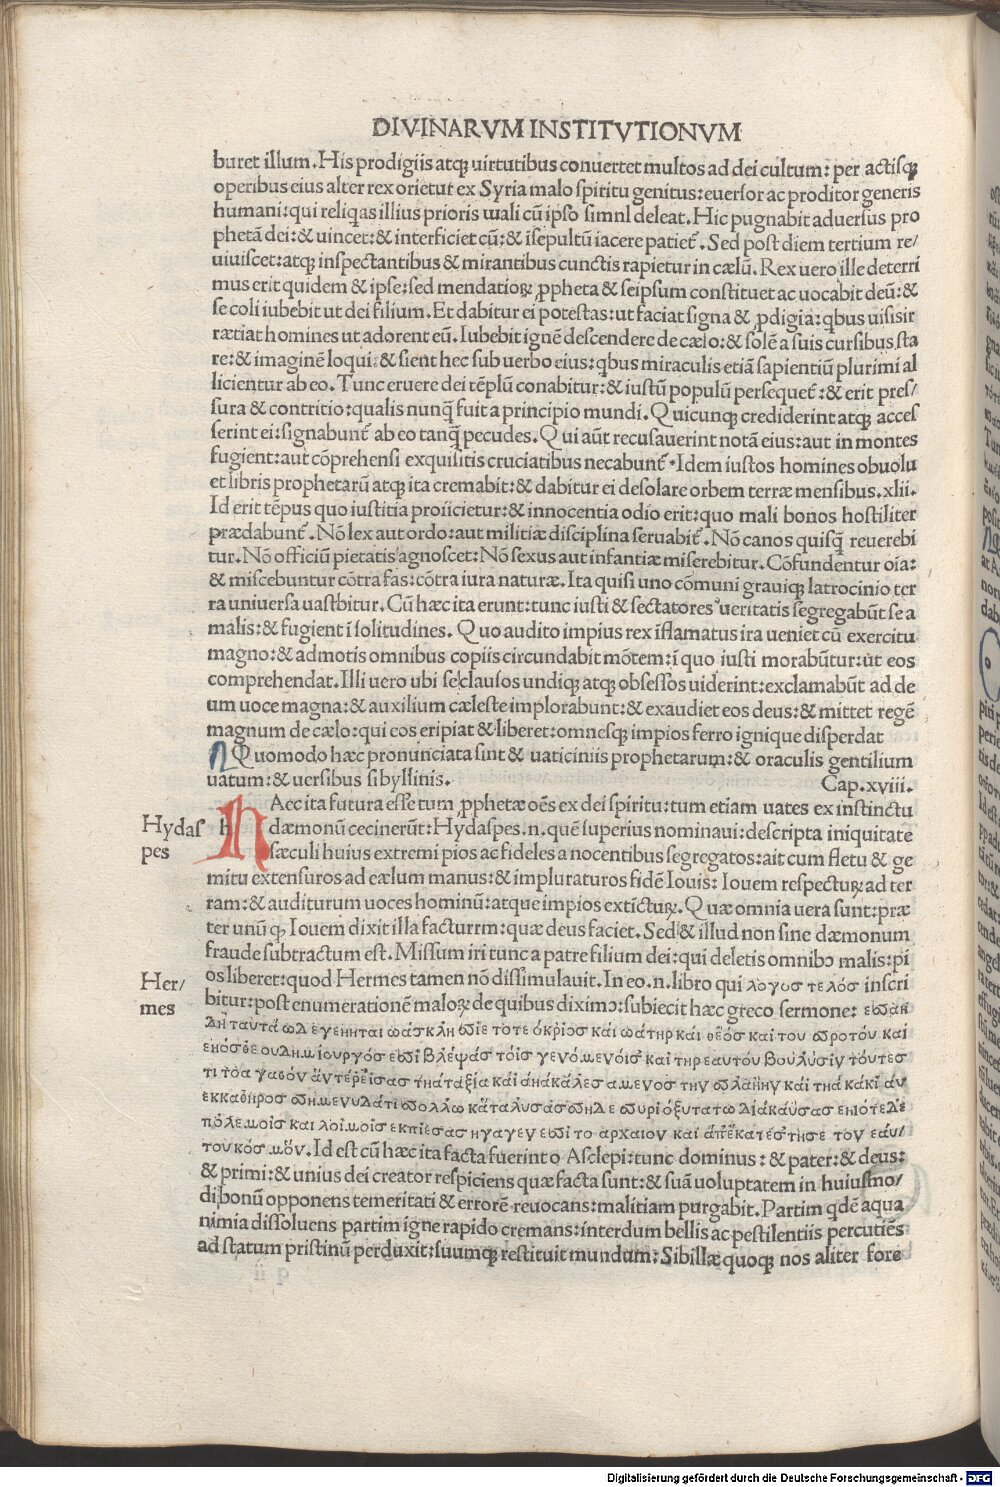 DIVINARVM INSTITVTIONVM
buret illum. His prodigiis atq; uirtutibus conuertet multos ad dei cultum: per actisq;
operibus eius alter rex orietur ex Syria malo spiritu genitus: euersor ac proditor generis
humani: qui reliqas illius prioris mali cū ipso simnl deleat. Hic pugnabit aduersus pro
phetā dei: & uincet: & interficiet eū: & īsepultū iacere patiet̃. Sed post diem tertium re/
uiuiscet: atq; inspectantibus & mirantibus cunctis rapietur in cælū. Rex uero ille deterri
mus erit quidem & ipse: sed mendatioꝝ ꝓpheta & seipsum constituet ac uocabit deū: &
se coli iubebit ut dei filium. Et dabitur ei potestas: ut faciat signa & ꝓdigia: qbus uisis ir
rætiat homines ut adorent eū. Iubebit ignē descendere de cælo: & solē a suis cursibus sta
re: & imaginē loqui: & fient hec sub uerbo eius: qbus miraculis etiā sapientiū plurimi al
licientur ab eo. Tunc eruere dei tēplū conabitur: & iustū populū persequet̃: & erit pres/
sura & contritio: qualis nunq̄ fuit a principio mundi. Quicunq; crediderint atq; acces
serint ei: signabunt̃ ab eo tanq̄ pecudes. Qui aūt recusauerint notā eius: aut in montes
fugient: aut cōprehensi exquisitis cruciatibus necabunt̃. Idem iustos homines obuolu
et libris prophetarū atq; ita cremabit: & dabitur ei desolare orbem terræ mensibus. xlii.
Id erit tēpus quo iustitia proiicietur: & innocentia odio erit: quo mali bonos hostiliter
prædabunt̃. Nō lex aut ordo: aut militiæ disciplina seruabit̃. Nō canos quisq̄ reuerebi
tur. Nō officiū pietatis agnoscet: Nō sexus aut infantiæ miserebitur. Cōfundentur oīa:
& miscebuntur cōtra fas: cōtra iura naturæ. Ita quisi uno cōmuni grauiq; latrocinio ter
ra uniuersa uastbitur. Cū hæc ita erunt: tunc iusti & sectatores ueritatis segregabūt se a
malis: & fugient ī solitudines. Quo audito impius rex īflamatus ira ueniet cū exercitu
magno: & admotis omnibus copiis circundabit mōtem: ī quo iusti morabūtur: ut eos
comprehendat. Illi uero ubi se clausos undiq; atq; obsessos uiderint: exclamabūt ad de
um uoce magna: & auxilium cæleste implorabunt: & exaudiet eos deus: & mittet regē
magnum de cælo: qui eos eripiat & liberet: omnesq; impios ferro ignique disperdat
Quomodo hæc pronunciata sint & uaticiniis prophetarum: & oraculis gentilium
uatum: & uersibus sibyllinis. Cap. xviii.
h Aec ita futura esse tum ꝓphetæ oēs ex dei spiritu: tum etiam uates ex instinctu
Hydas
pes
dæmonū cecinerūt: Hydaspes. n. quē superius nominaui: descripta iniquitate
sæculi huius extremi pios ac fideles a nocentibus segregatos: ait cum fletu & ge
mitu extensuros ad cælum manus: & impluraturos fidē Iouis: Iouem respecturꝝ ad ter
ram: & auditurum uoces hominū: atque impios extīcturꝝ. Quæ omnia uera sunt: præ
ter unū q; Iouem dixit illa facturrm: quæ deus faciet. Sed & illud non sine dæmonum
fraude subtractum est. Missum iri tunc a patre filium dei: qui deletis omnibꝰ malis: pi
Her/
mes
os liberet: quod Hermes tamen nō dissimulauit. In eo. n. libro qui λογοσ τελόσ inscri
bitur: post enumerationē maloꝝ de quibus diximꝰ: subiecit hæc greco sermone:
του κόσμὅν. Id est cū hæc ita facta fuerint o Asclepi: tunc dominus: & pater: & deus:
& primi: & unius dei creator respiciens quæ facta sunt: & suā uoluptatem in huiusmo/
di bonū opponens temeritati & errorē reuocans: malitiam purgabit. Partim qdē aqua
nimia dissoluens partim igne rapido cremans: interdum bellis ac pestilentiis percutiēs
ad statum pristinū perduxit: suumq; restituit mundum: Sibillæ quoq; nos aliter fore